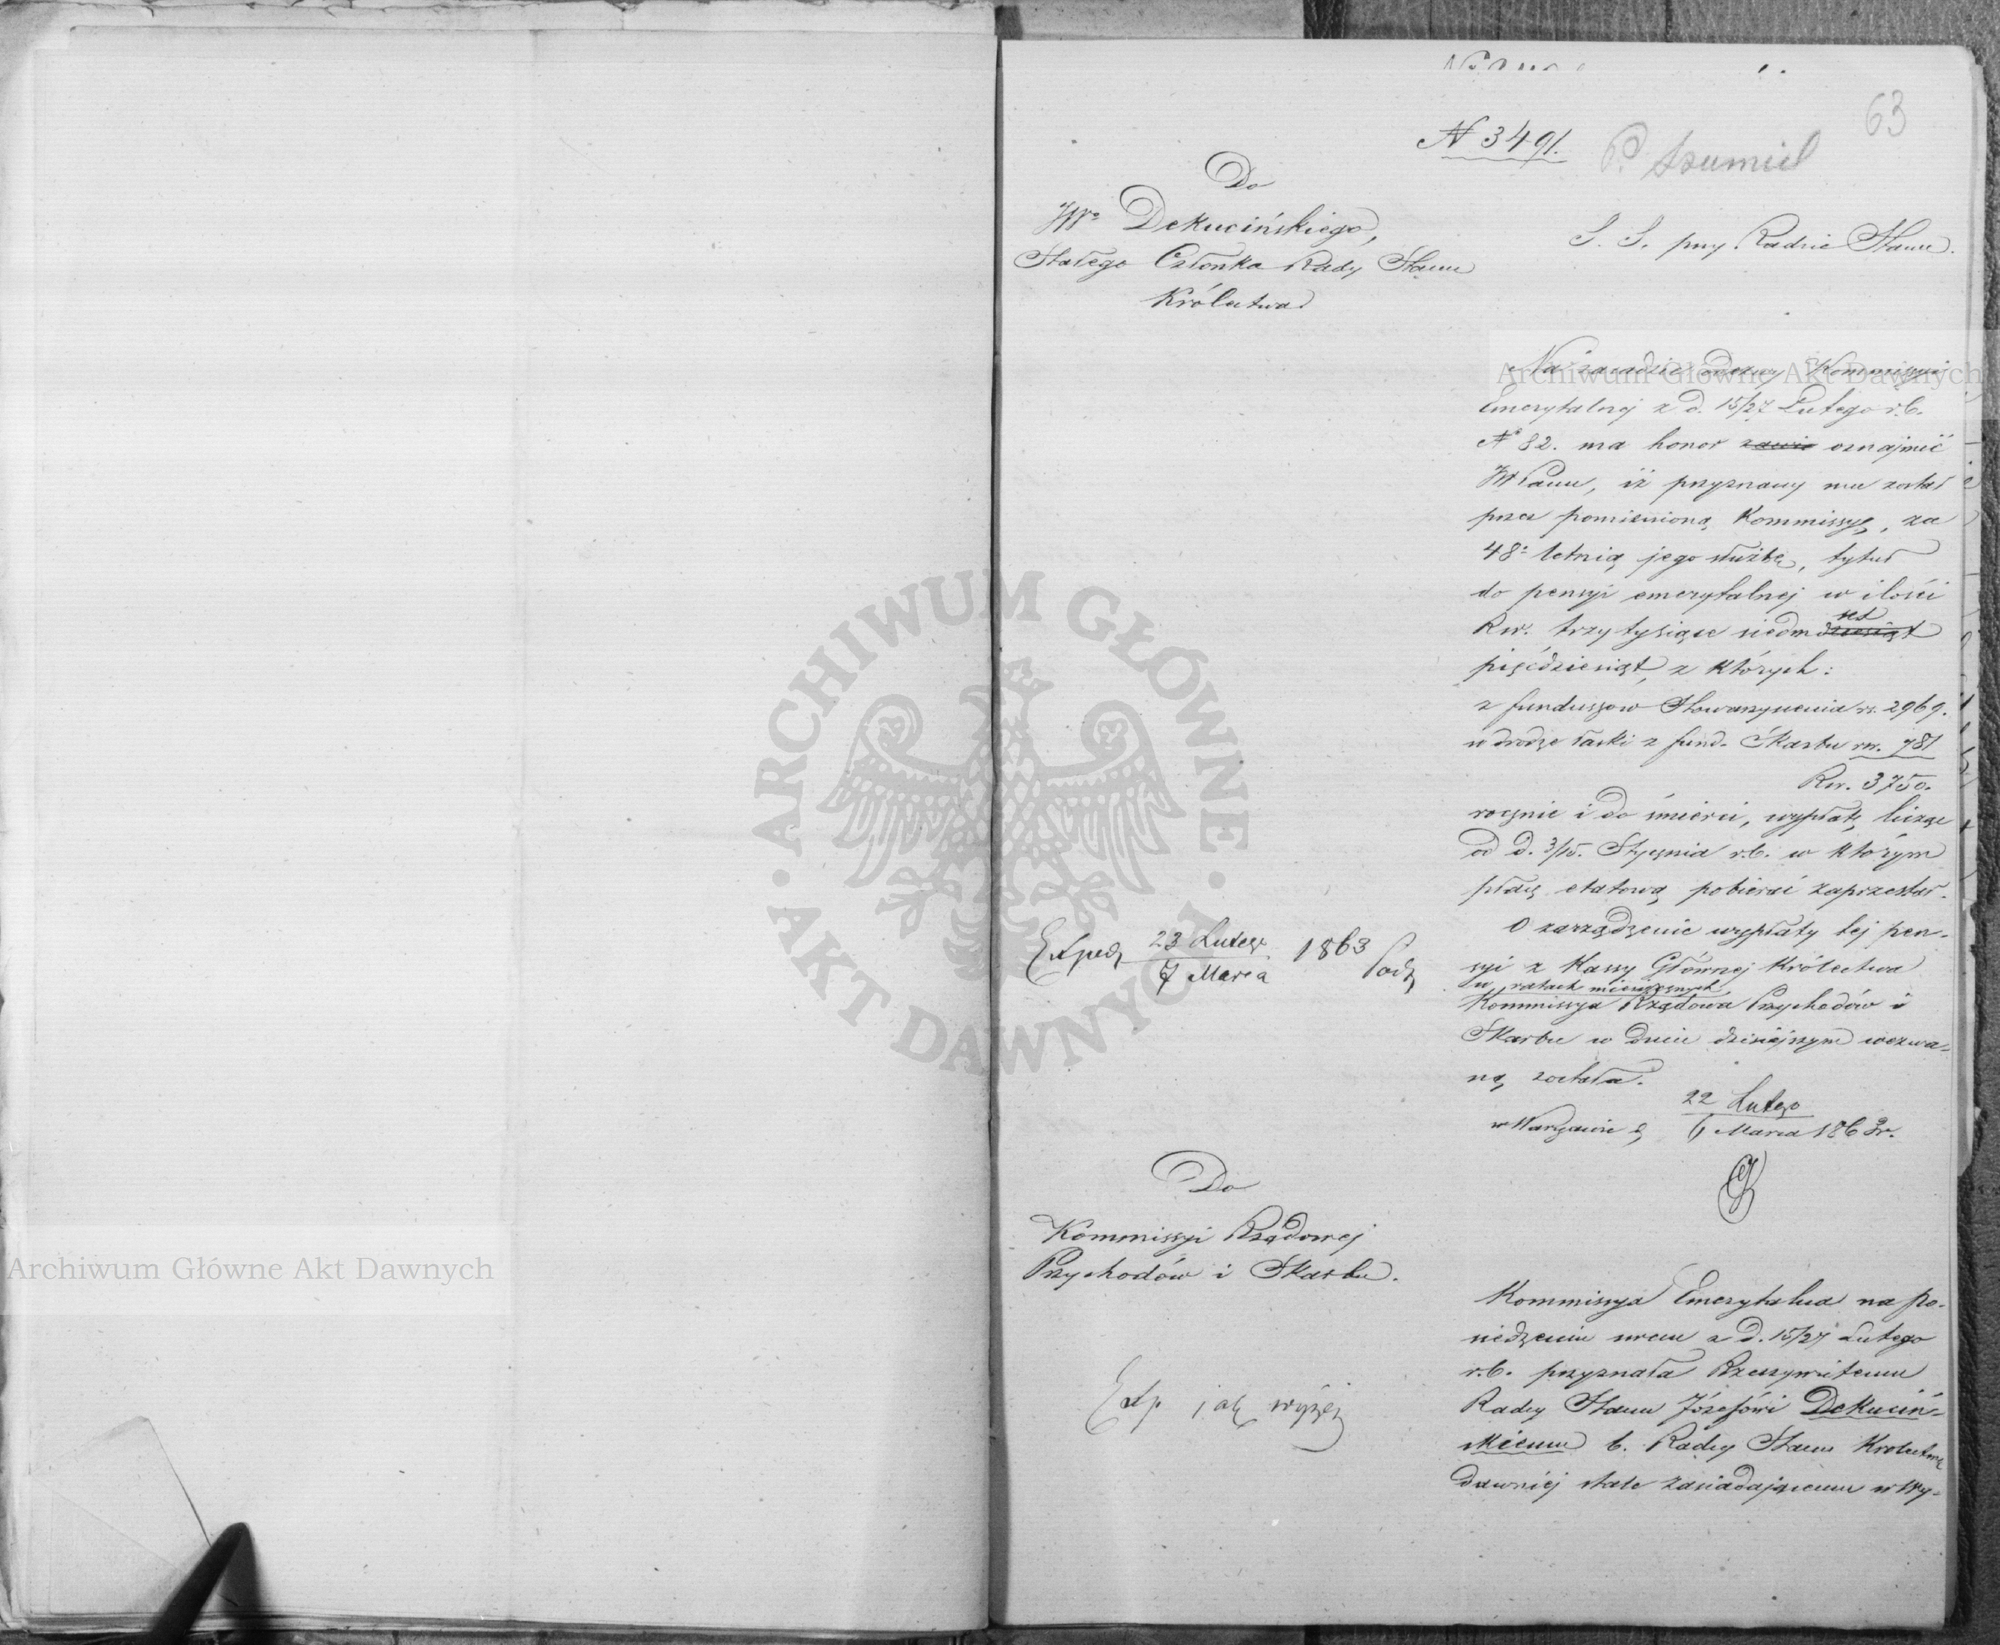 63
N 3491.
P. Szumiel
Do
JWo Dekucińskiego,
Stałego Członka Rady Stanu
Królestwa
S. S. przy Radzie Stanu.
Na zasadzie odezwy Kommissyi
Emerytalnej z d. 15/27 Lutego r.b.
No 82. ma honor zawia oznajmić
JWPanu, iż przyznany mu został
przez pomienioną Kommissyę, za
48o letnią jego służbę, tytuł
do pensyi emerytalnej w ilości
set
Rsr. trzy tysiące siedmdziesiąt
pięćdziesiąt, z których:
z funduszow Stowarzyszenia rs. 2969.
w drodze łaski z fund. Skarbu rsr. 781
Rsr. 3750.
rocznie i do śmierci, wypłatę licząc
od d. 3/15. Stycznia r.b. w którym
płacę etatową pobierać zaprzestał.
O zarządzenie wypłaty tej pen-
syi z Kassy Głównej Królestwa
w ratach miesięcznych
Kommissya Rządowa Przychodów i
Skarbu w dniu dzisiejszym wezwa-
ną została.
22 Lutego
w Warszawie d 6 Marca 1863r.
Exped 23 Lutego
7 Marca 1863
Do
Kommissyi Rządowej
Przychodów i Skarbu.
Exp jak wyżej
Kommissya Emerytalna na po-
siedzeniu swem z d. 15/27 Lutego
r.b. przyznała Rzeczywistemu
Radcy Stanu Józefowi Dekuciń-
skiemu b. Radcy Stanu Królestwa
dawniej stale zasiadającemu w Wy-
Archiwum Główne Akt Dawnych
Archiwum Główne Akt Dawnych
ARCHIWUM GŁÓWNE · AKT DAWNYCH ·